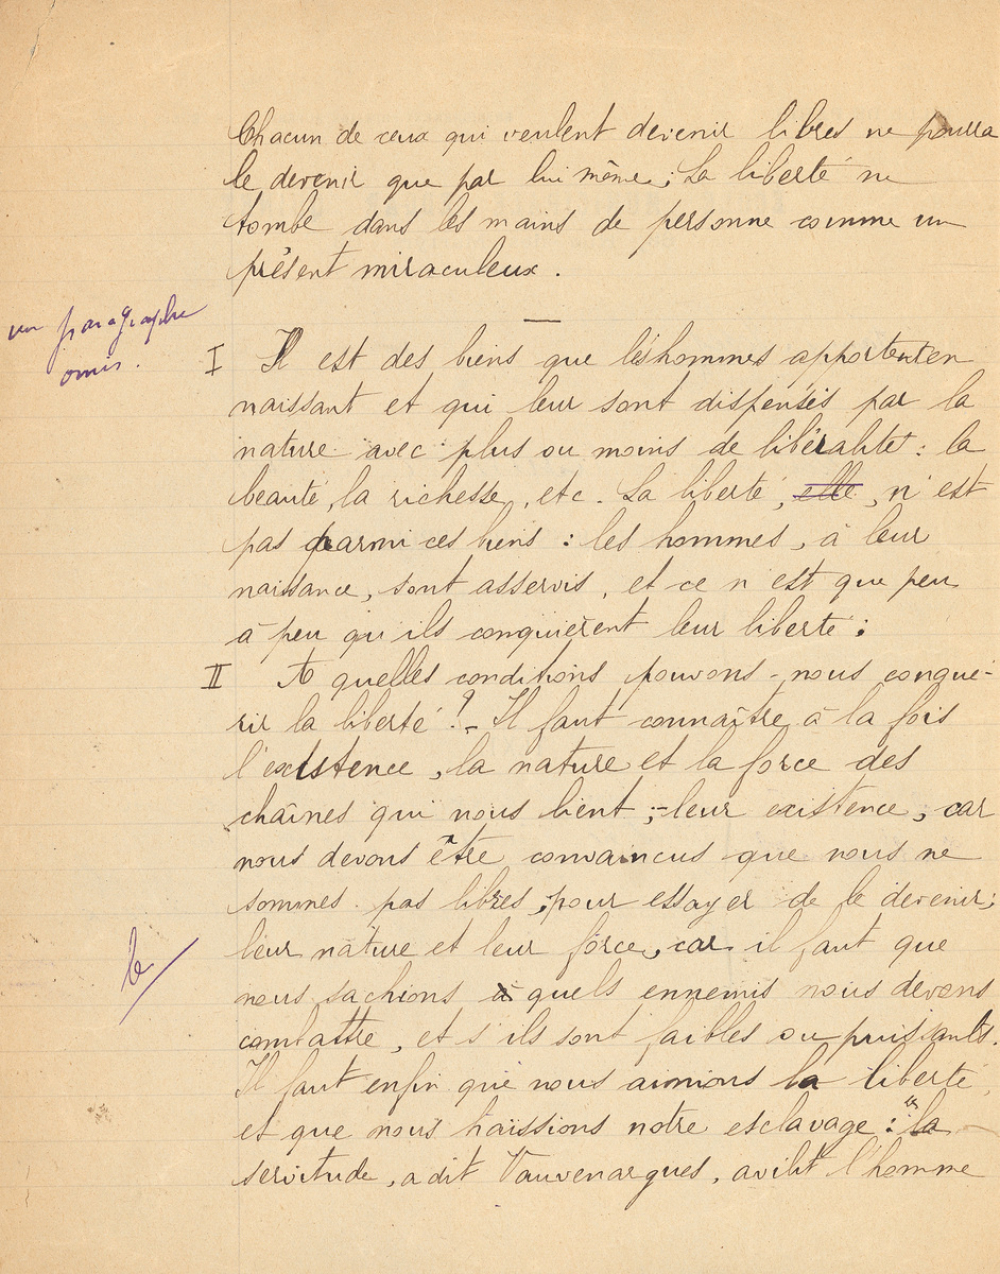 Chacun de ceux qui veulent devenir libres ne pourra
le devenir que par lui même ; La liberté ne
tombe dans les mains de personne comme un
présent miraculeux .
un paragraphe
omis .
I Il est des biens que les hommes apportent en
naissant et qui leur sont dispensés par la
nature avec plus ou moins de libéralité : la
beauté, la richesse, etc. La liberté, elle, n'est
pas parmi ces biens : les hommes, à leur
naissance, sont asservis, et ce n'est que peu
à peu qu'ils conquièrent leur liberté ;
II A quelles conditions pouvons-nous conqué-
rir la liberté ? - Il faut connaître à la fois
l'existence, la nature et la force des
chaînes qui nous lient ; - leur existence, car
nous devons être convaincus que nous ne
sommes pas libres, pour essayer de le devenir ;
leur nature et leur force, car il faut que
nous sachions à quels ennemis nous devons
combattre, et s'ils sont faibles ou puissants.
Il faut enfin que nous aimions la liberté,
et que nous haïssions notre esclavage : "la
servitude, a dit Vauvenargues, avilit l'homme